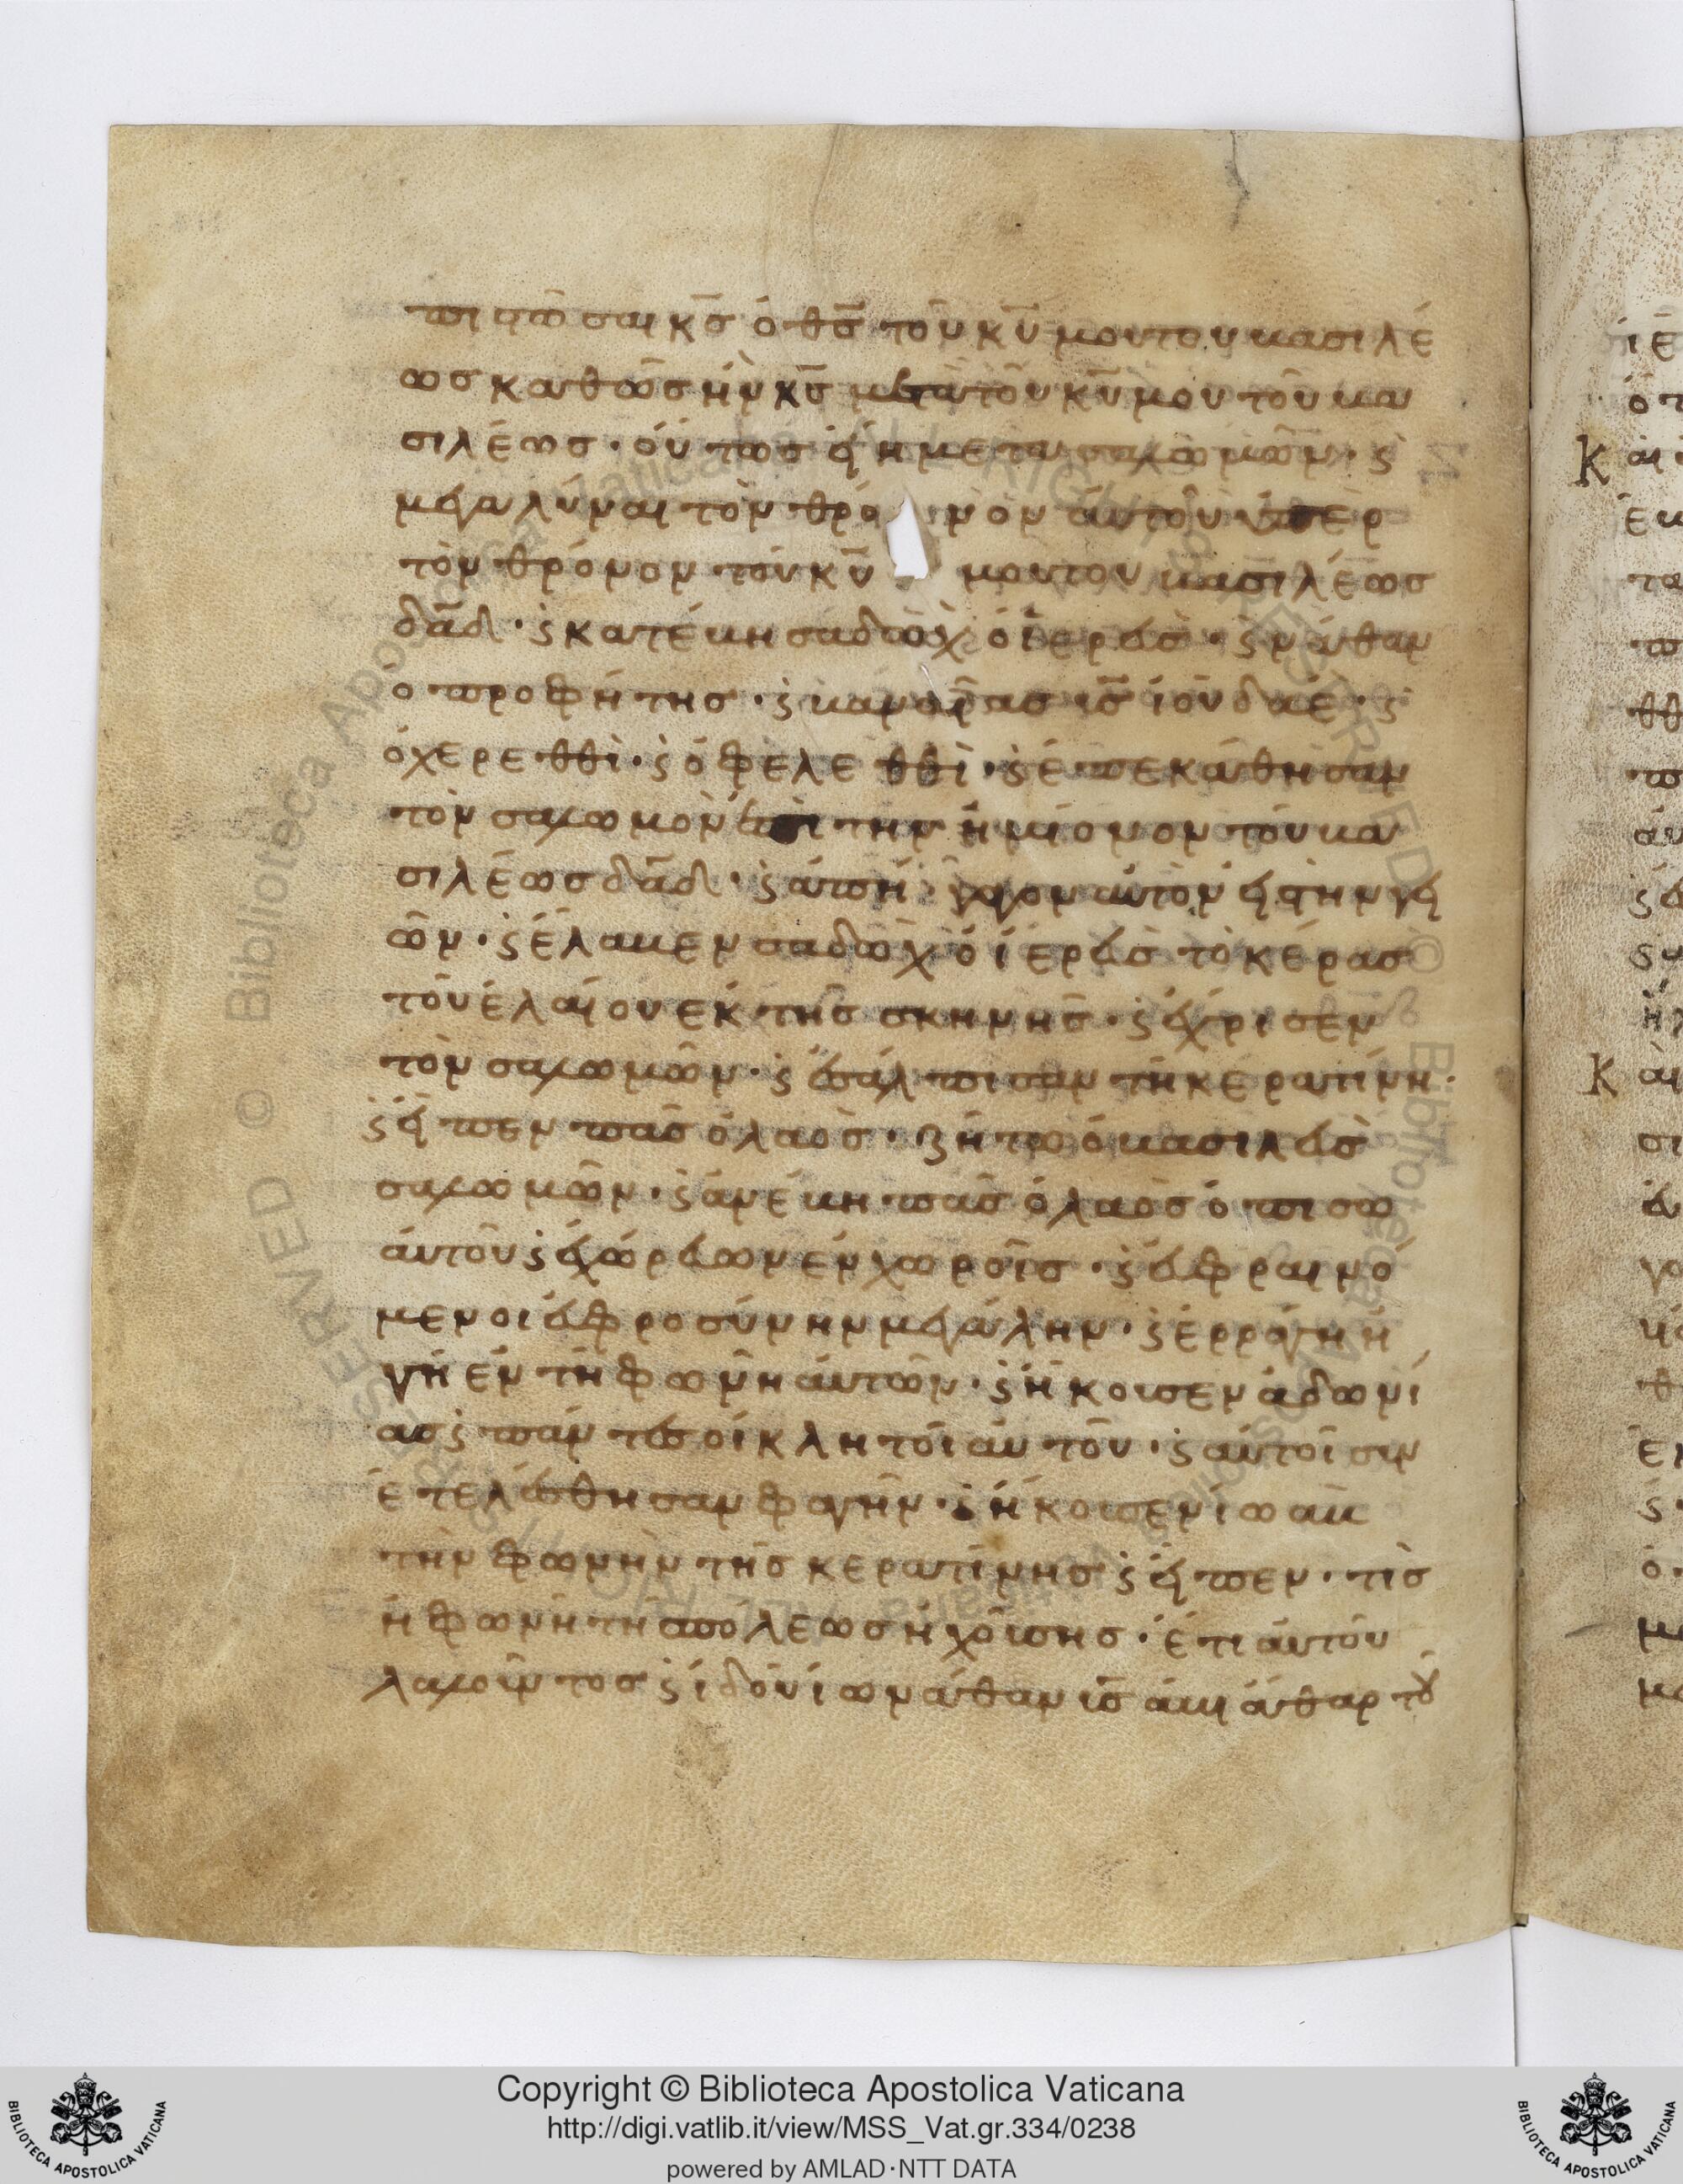 πι πῶσαι κ̅ς̅ ὁ θ̅ς̅ τοῦ κ̅υ̅ μου του βασιλέ
ως καθὼς ἦν κ̅ς̅ μετὰ τοῦ κ̅υ̅ μου τοῦ βα
σιλέως · οὕτως εἴη μετα σαλωμῶν · ϛ
μεγαλύναι τὸν θρό νον αὐτοῦ ὑπὲρ
τὸν θρόνον τοῦ κ̅υ̅ μου του βασιλέως
δα̅δ · ϛ κατέβη σαδωχ ὁ ἱερεὺς · ϛ νάθαν
ὁ προφήτης · ϛ βαναίας υ̅ς̅ ἰουδαέ · ϛ
ὁ χερεθθὶ · ϛ ὁ φελεθθὶ · ϛ ἐπεκάθησαν
τὸν σαλωμὸν ἐπὶ τὴν ἡμίονον τοῦ βα
σιλέως δα̅δ · ϛ ἀπήγαγον αὐτὸν εἰς τὴν γει
ῶν · ϛ ἔλαβεν σαδὼχ ὁ ἱερεὺς τὸ κέρας
τοῦ ἐλαίου ἐκ τῆς σκηνῆς · ϛ ἔχρισεν
τὸν σαλωμῶν · ϛ ἐσάλπισαν τῆ κερατίνη ·
ϛ εἶπεν πᾶς ὁ λαὸς · ζήτω ὁ βασιλεὺς
σαλωμῶν · ϛ ἀνέβη πᾶς ὁ λαὸς ὀπισω
αὐτοῦ ϛ ἐχώρευων ἐν χωροῖς · ϛ εὐφραινό
μενοι εὐφροσύνην μεγάλην · ϛ ἐρράγη ἡ
γῆ ἐν τῆ φωνῆ αὐτῶν · ϛ ἤκουσεν ἀδωνί
ας ϛ πάντες οἱ κλητοὶ αὐτοῦ · ϛ αὐτοὶ συν
ἐτελέσθησαν φαγῆν · ϛ ἤκουσεν ἰωαβ
τὴν φωνὴν τῆς κερατίνης ϛ εἶπεν · τίς
ἡ φωνὴ τῆς πόλεως ἠχούσης · ἔτι αὐτοῦ
λαλοῦντος ϛ ἰδοὺ ἰωνάθαν υ̅ς̅ ἀβιάθαρ τοῦ
Copyright © Biblioteca Apostolica Vaticana
http://digi.vatlib.it/view/MSS_Vat.gr.334/0238
powered by AMLAD·NTT DATA
BIBLIOTECA APOSTOLICA VATICANA
BIBLIOTECA APOSTOLICA VATICANA